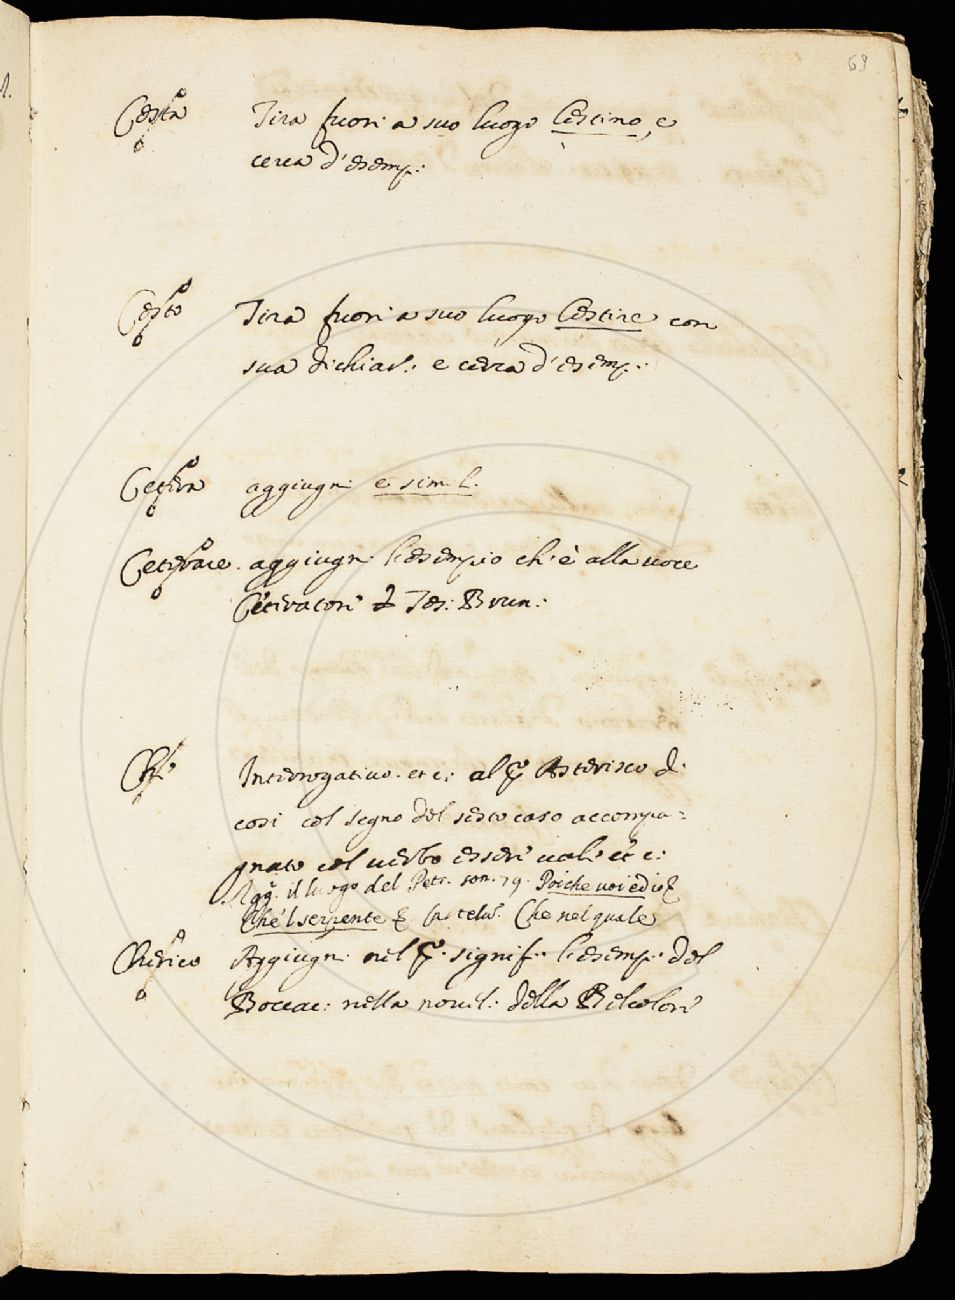 69
Cesta Tira fuori a suo luogo Cestino, e
cerca d'esemp.
Cesto Tira fuori a suo luogo Cestire con
sua dichiar.: e cerca d'esemp.:
Cetera aggiugni e simil.
Ceterare. aggiugni l'esempio ch'è alla voce
Ceteratori Tes: Brun:
Che Interrogativo. etc: al Asterisco d.
cosi col segno del sesto caso accompa=
gnato col verbo essere vale etc:
Agg. il luogo del Petr. son. 79. Poiche voi ed io
Che'l serpente Che nel quale
Cherico Aggiugni nel signif: l'esemp: del
Boccac: nella novel: della Belcolore